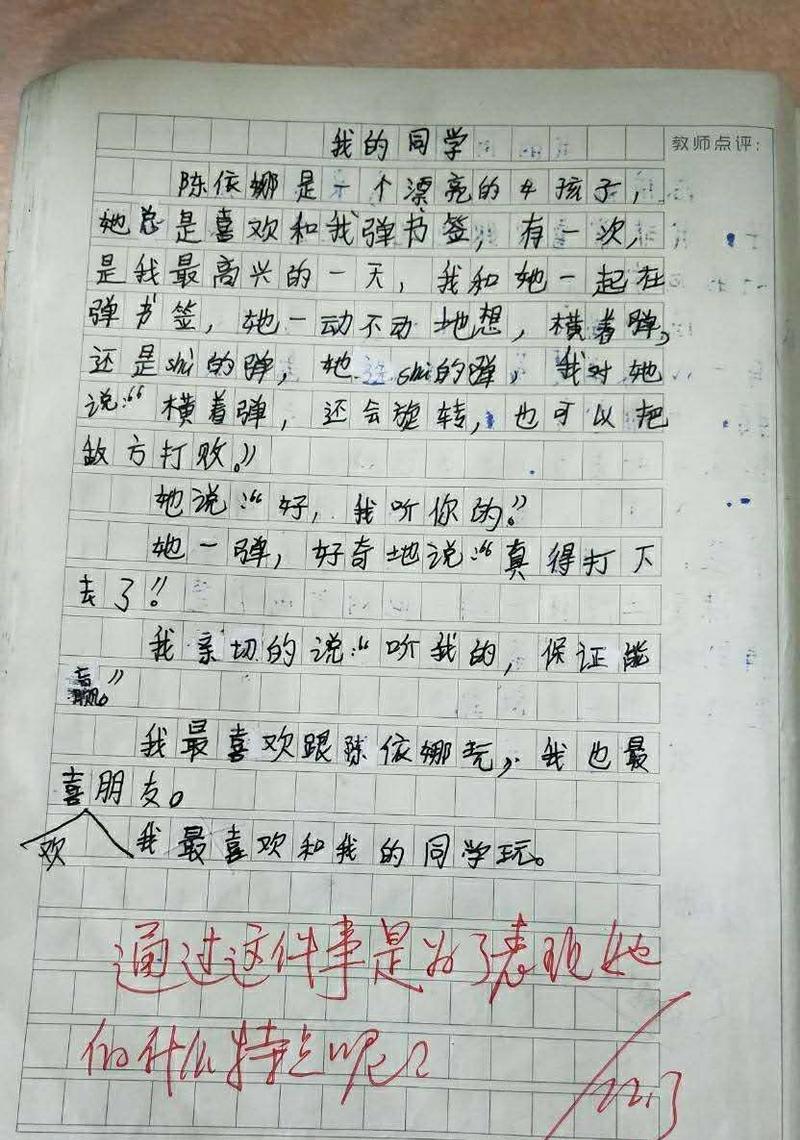 我的同学
教师点评：
陈依娜是一个漂亮的女孩子，
她总是喜欢和我弹书签，有一次，
是我最高兴的一天，我和她一起在
弹书签，她一动不动地想，横着弹，
还是shi的弹，她选shi的弹，我对她
说：“横着弹，还会旋转，也可以把
敌方打败。”
她说：“好，我听你的。”
她一弹，好奇地说：“真得打下
去了！”
我亲切的说：“听我的，保证能
赢。”
我最喜欢跟陈依娜玩，我也最
喜朋友。
欢
我最喜欢和我的同学玩。
通过这件事是为了表现她
的什么特点呢？